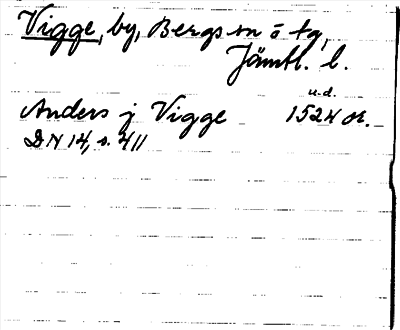 Vigge, by, Bergs sn o tg,
Jämtl. l.
u.d.
Anders j Vigge 1524 or.
DN 14, s. 411